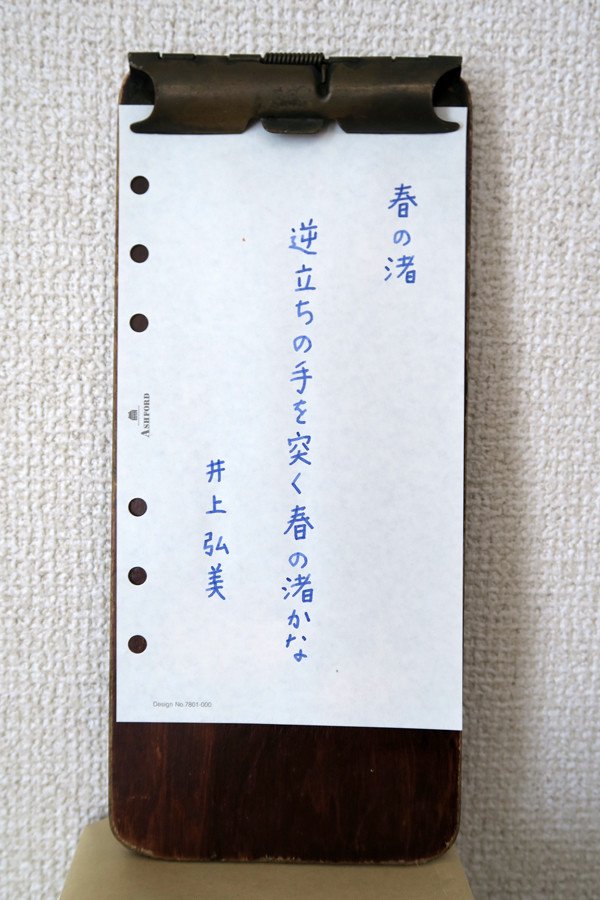 春の渚
逆立ちの手を突く春の渚かな
井上弘美
ASHFORD
Design No.7801-000